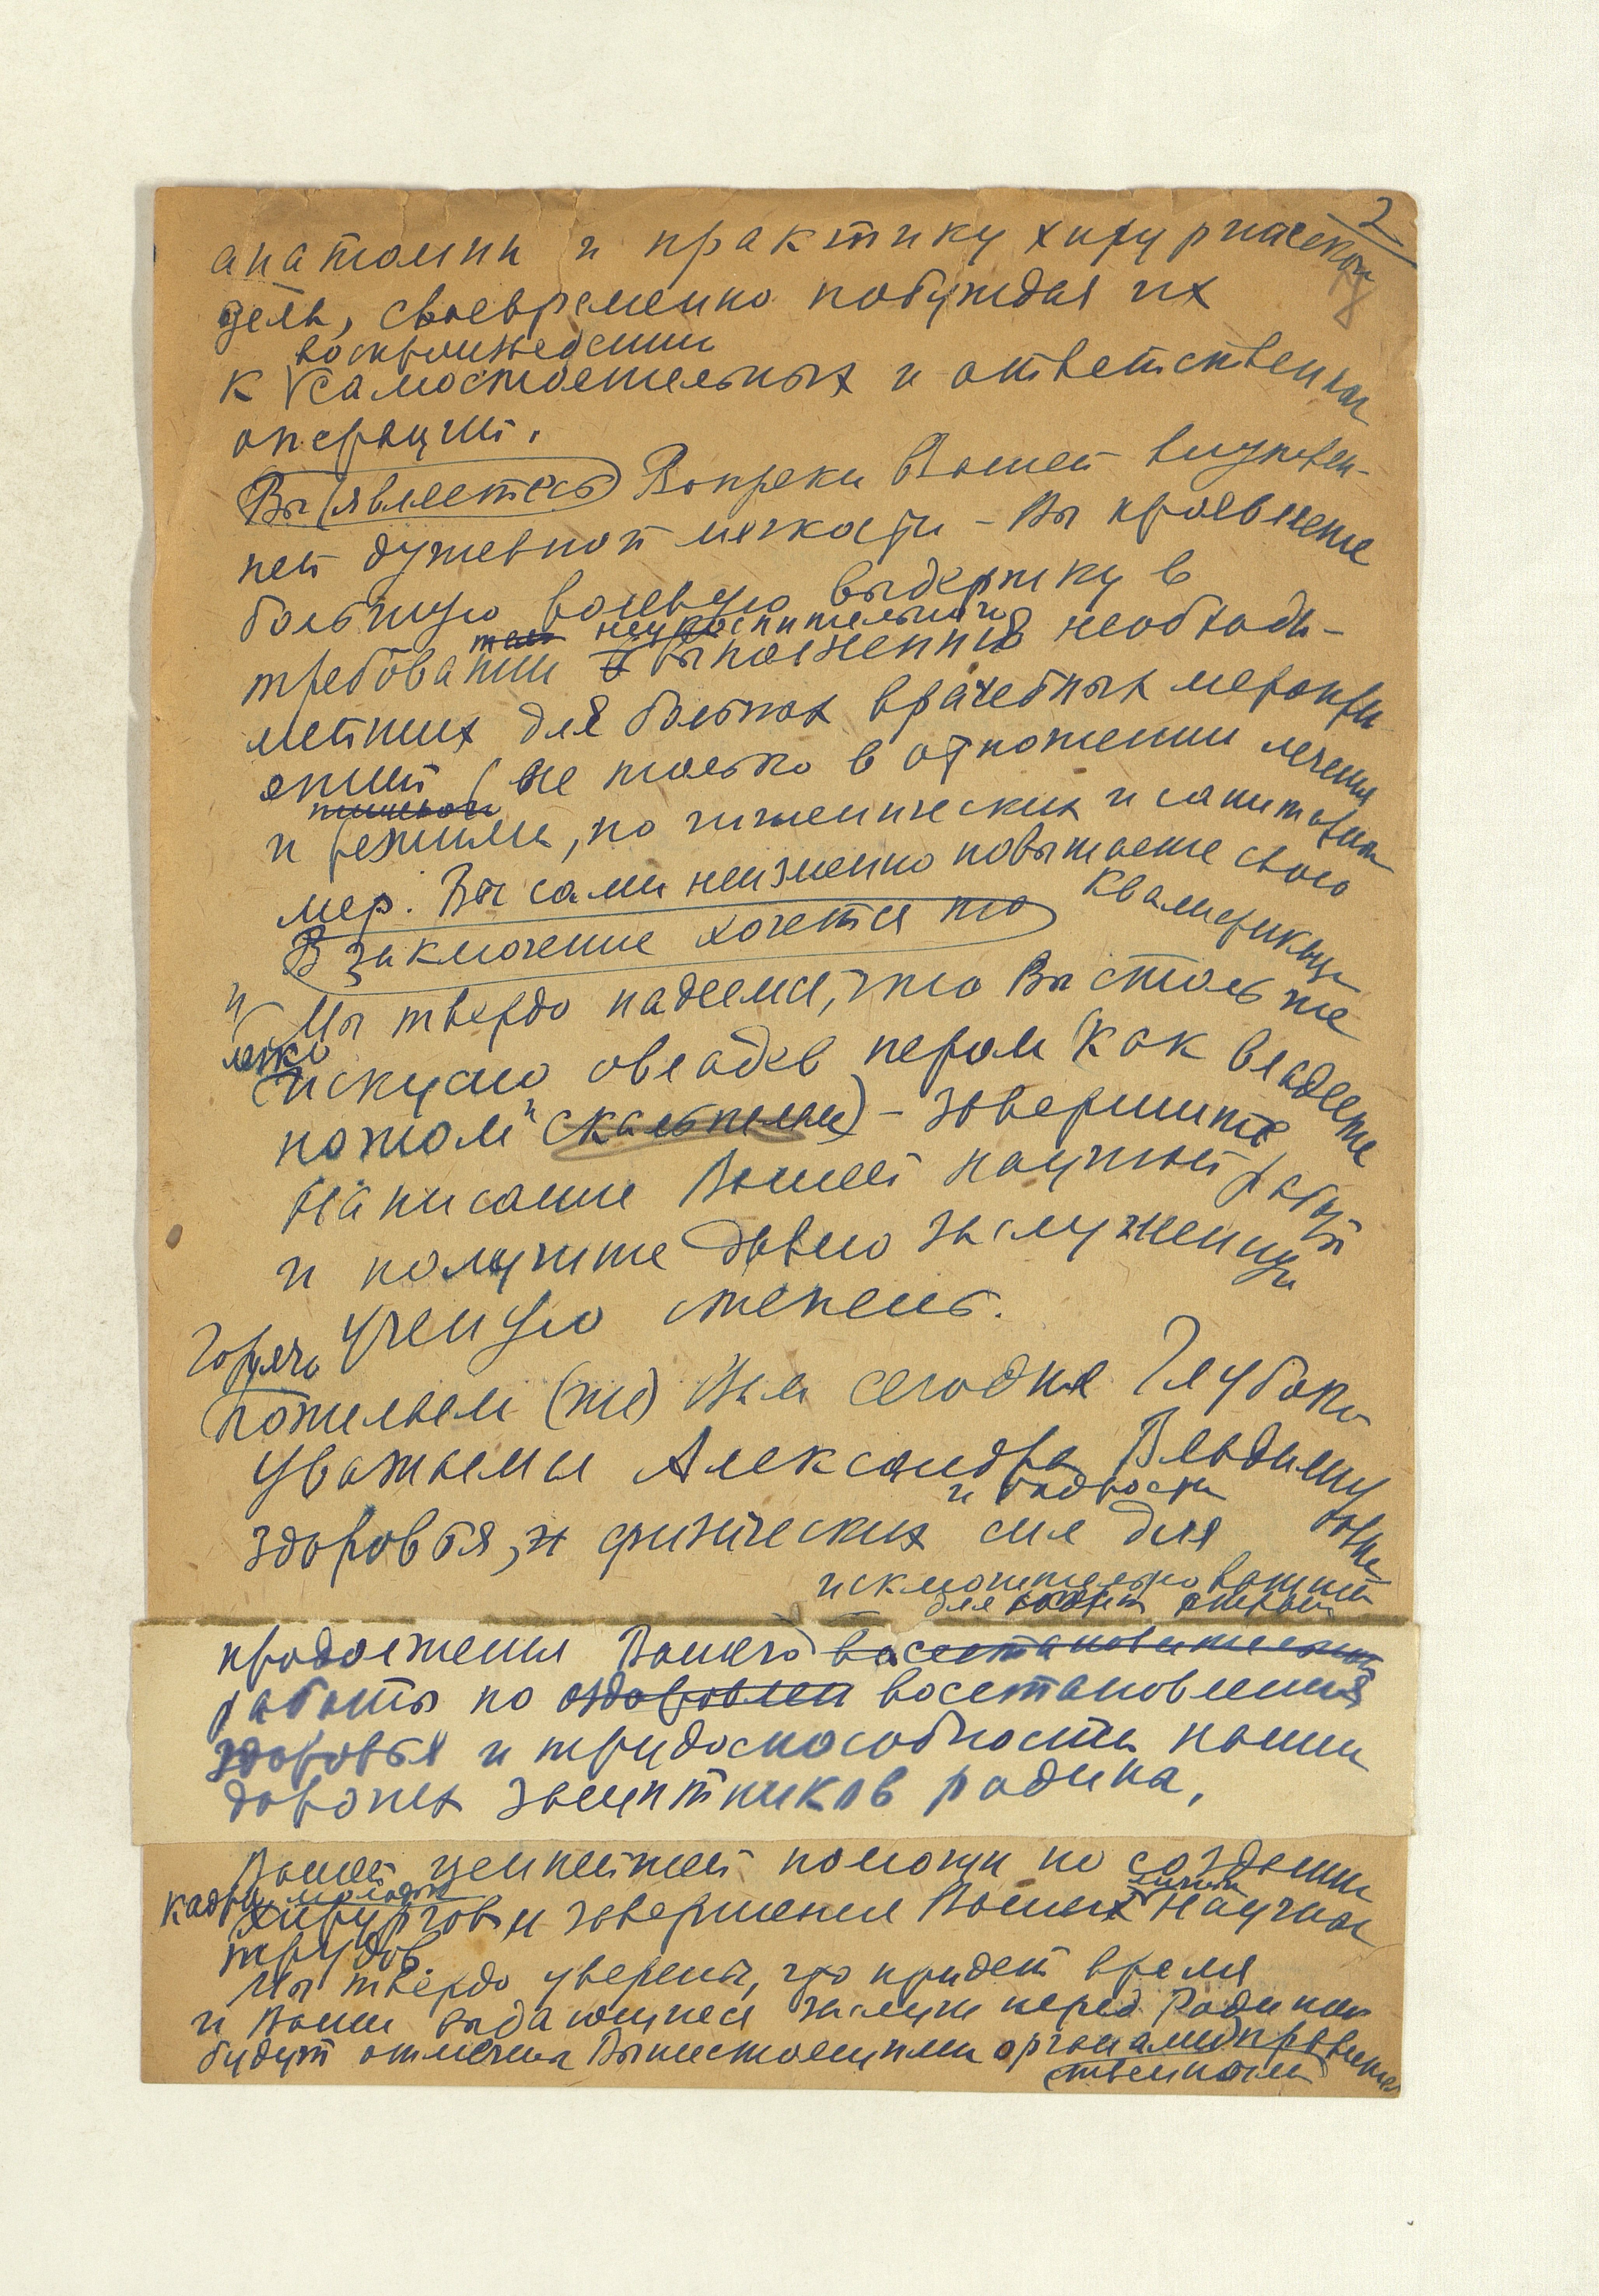 2
анатомии и практику хирургической
дела, своевременно побуждая их
воспроизведении
к самостоятельных и ответственных
операций.
Вы (являетесь) Вопреки Вашей внутрен-
ней душевной мягкости – Вы проявляете
большую волевую выдержку в
неукоснительного
требовании выполнения необходи-
мейших для больных врачебных меропри
ятий (не только в отношении лечения
и режима, но гигиенических и санитарных
мер. Вы сами неизменно повышаете свою
квалификацию
В заключение хочется по
и Мы твердо надеемся, что Вы столь же
легко
искусно овладев пером (как владеете
ножом" скальпелем) – завершите
написание Вашей научной работы
и получите давно заслуженную
ученую степень.
Горячо
пожелаем (те) Вам сегодня Глубоко
уважаемая Александра Владимировна
и бодрости
здоровья, и физических сил для
исключительно важной
для
продолжения Вашего восстановительной
работы по оздоровлен восстановления
здоровья и трудоспособности наших
дорогих защитников родина,
Вашей ценнейшей помощи по создании
кадры молодых
хирургов и завершения Ваших Научных
трудов.
Мы твердо уверены, что придет время
и Ваши выдающиеся заслуги перед Родиной
будут отмечены Вышестоящими органами правительс
твенными